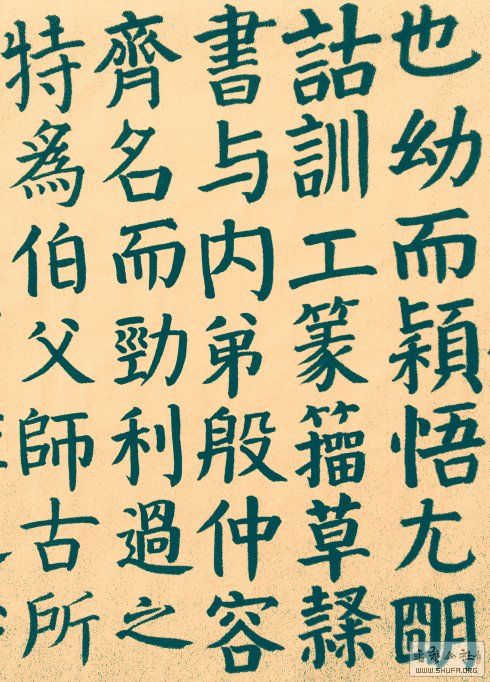 也幼而穎悟尤朙
詁訓工篆籀草隸
書与内弟殷仲容
齊名而勁利過之
特爲伯父師古所
WWW.SHUFA.ORG